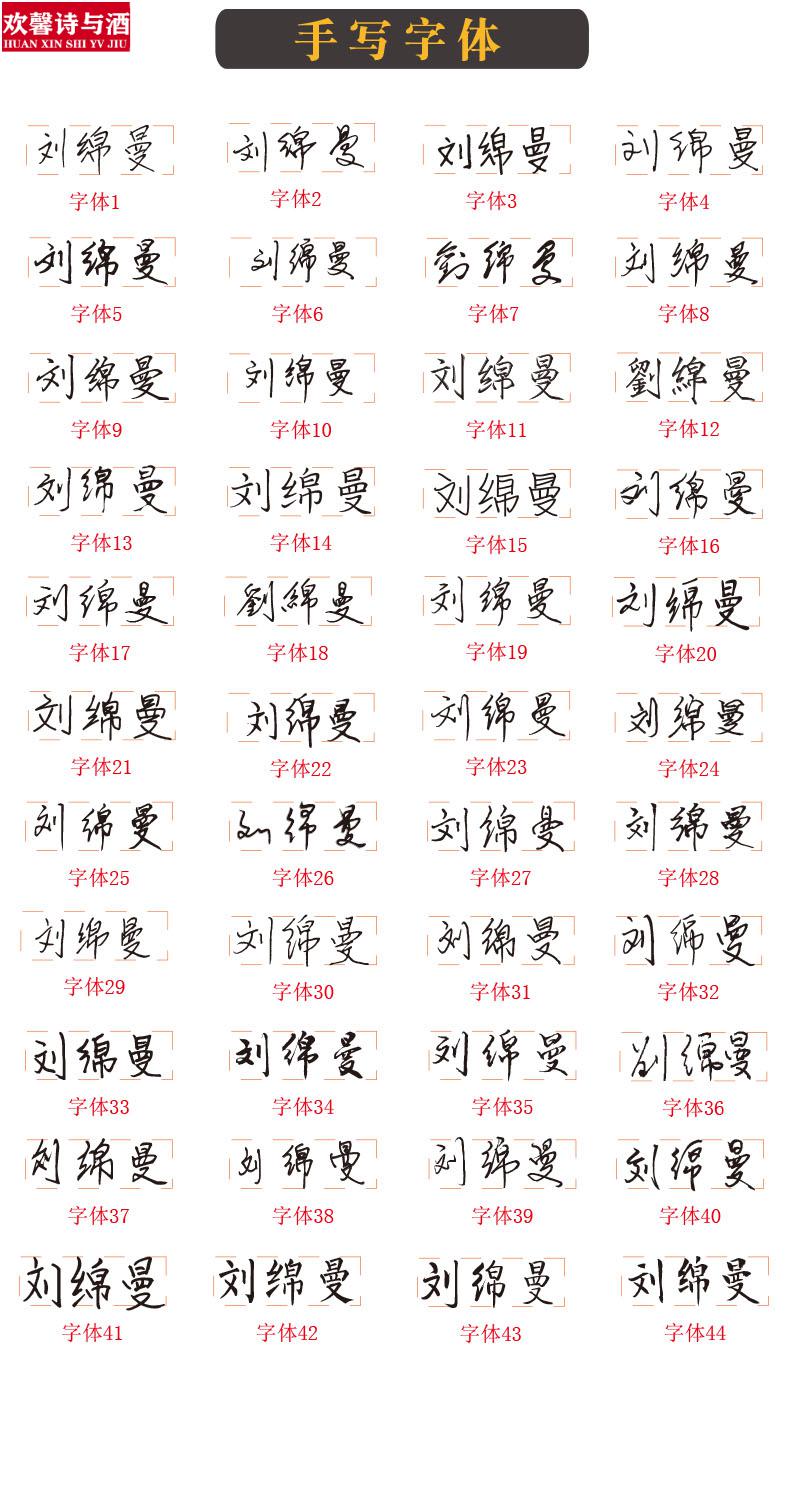 欢馨诗与酒
HUAN XIN SHI YV JIU
手写字体
刘绵曼 刘绵曼 刘绵曼 刘绵曼
字体1 字体2 字体3 字体4
刘绵曼 刘绵曼 劉绵曼 刘绵曼
字体5 字体6 字体7 字体8
刘绵曼 刘绵曼 刘绵曼 劉綿曼
字体9 字体10 字体11 字体12
刘绵曼 刘绵曼 刘绵曼 刘绵曼
字体13 字体14 字体15 字体16
刘绵曼 劉綿曼 刘绵曼 刘绵曼
字体17 字体18 字体19 字体20
刘绵曼 刘绵曼 刘绵曼 刘绵曼
字体21 字体22 字体23 字体24
刘绵曼 刘绵曼 刘绵曼 刘绵曼
字体25 字体26 字体27 字体28
刘绵曼 刘绵曼 刘绵曼 刘绵曼
字体29 字体30 字体31 字体32
刘绵曼 刘绵曼 刘绵曼 刘绵曼
字体33 字体34 字体35 字体36
刘绵曼 刘绵曼 刘绵曼 刘绵曼
字体37 字体38 字体39 字体40
刘绵曼 刘绵曼 刘绵曼 刘绵曼
字体41 字体42 字体43 字体44